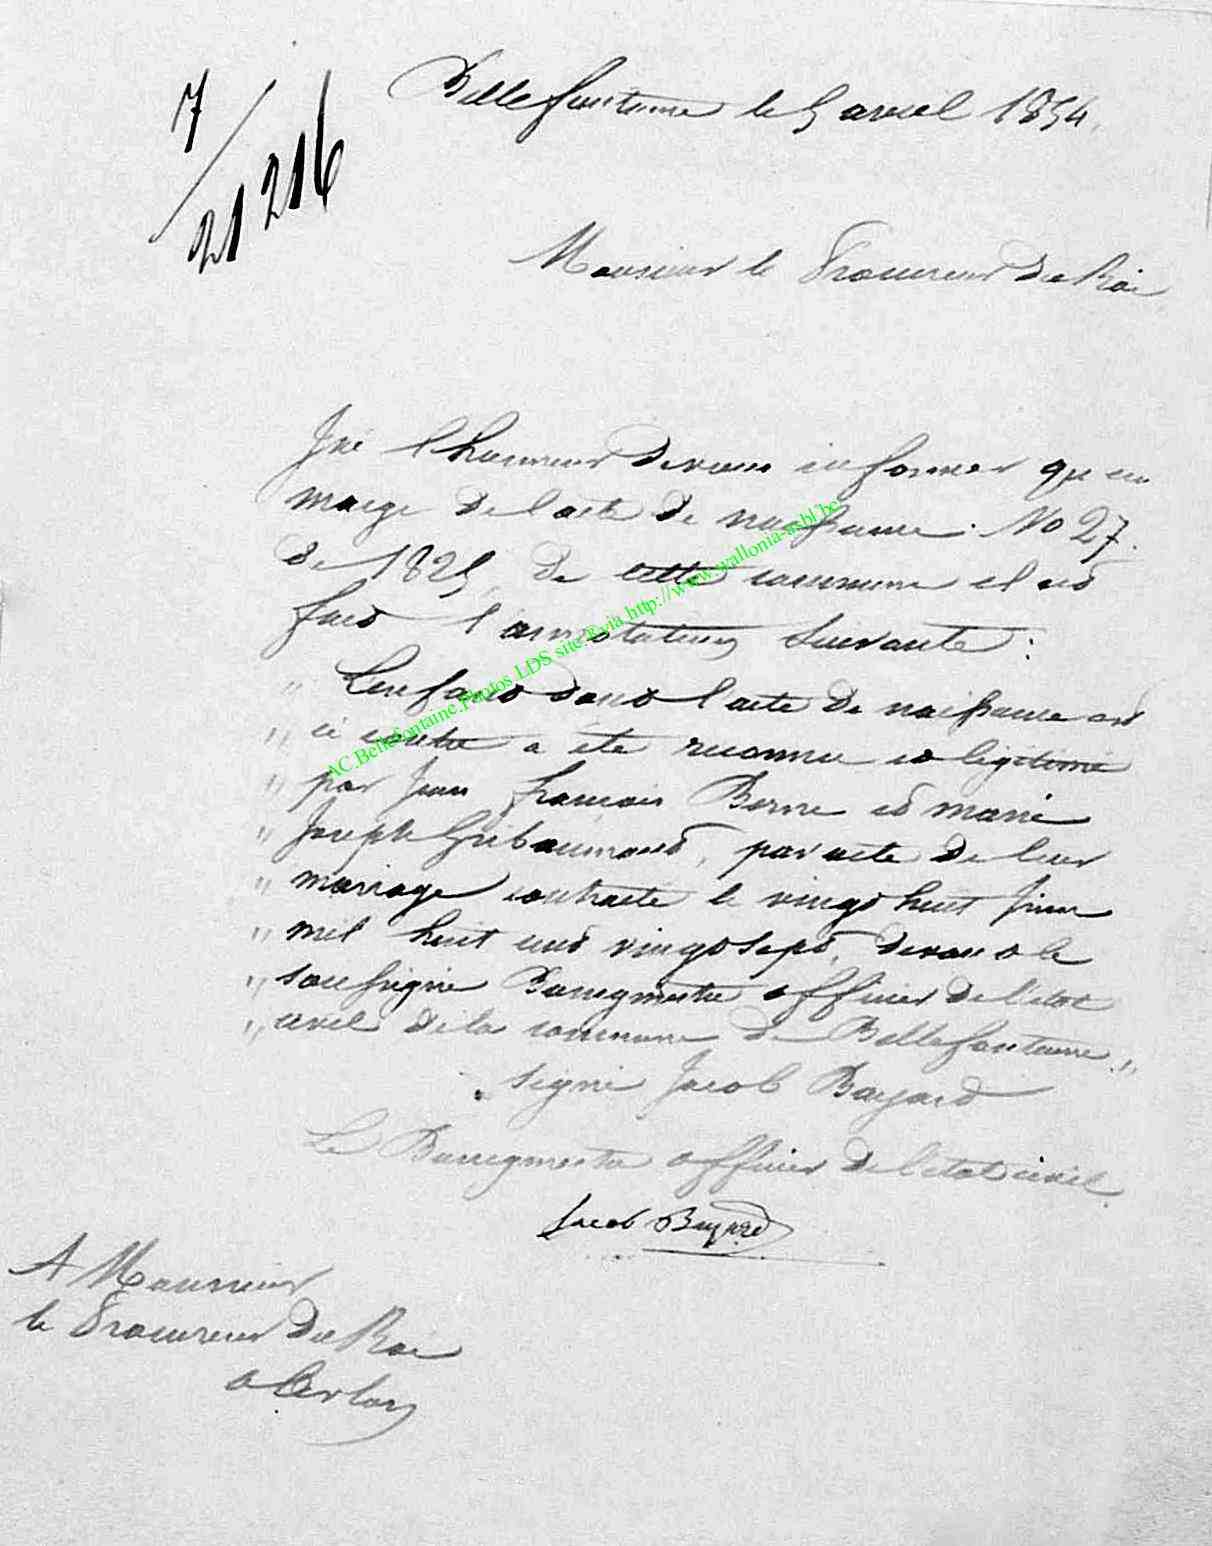 Bellefontaine le 5 avril 1854.
7/21 216
Monsieur le Procureur du Roi
J'ai l'honneur de vous informer qu'en
marge de l'acte de naissance No 27.
de 1825, de cette commune il est
fait l'annotation suivante :
" L'enfant dont l'acte de naissance est
" ci contre a été reconnu et légitimé
" par Jean francois Borne et marie
" Joseph Gribaumont, par acte de leur
" mariage contracté le vingt huit Juin
" mil huit cent vingt sept, devant le
" soussigné Bourgmestre officier de l'état
" civil de la commune de Bellefontaine "
signé Jacob Bayard
Le Bourgmestre officier de l'état civil
Jacob Bayard
A Monsieur
le Procureur du Roi
a Arlon
AC.Bellefontaine.Photos LDS site Evia http://www.wallonia-asbl.be/